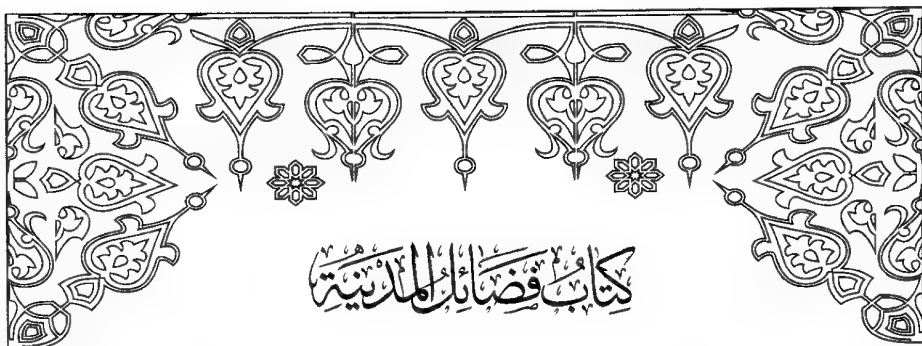 كِتَابُ فَضَائِلُ الْمَدِينَةِ